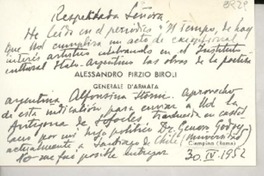 Respetada Señora,
He leido en el periodico "Il Tempo" de hoy
que Ud cumplira un acto de excepcional
interés artistico celebrando en el Instituto
cultural Italo-Argentino las obras de la poetisa
ALESSANDRO PIRZIO BIROLI
GENERALE D'ARMATA
argentina Alfonsina Storni. Aprovecho
de esta indicación para enviar a Ud la
Antigona de Sofocles traducida en
por mi hijo politico Dr. Genaro Godoy
actualmente a Santiago de Chile (Universidad)
No me fue posible entregar
Ciampino (Roma)
30 IV 1952